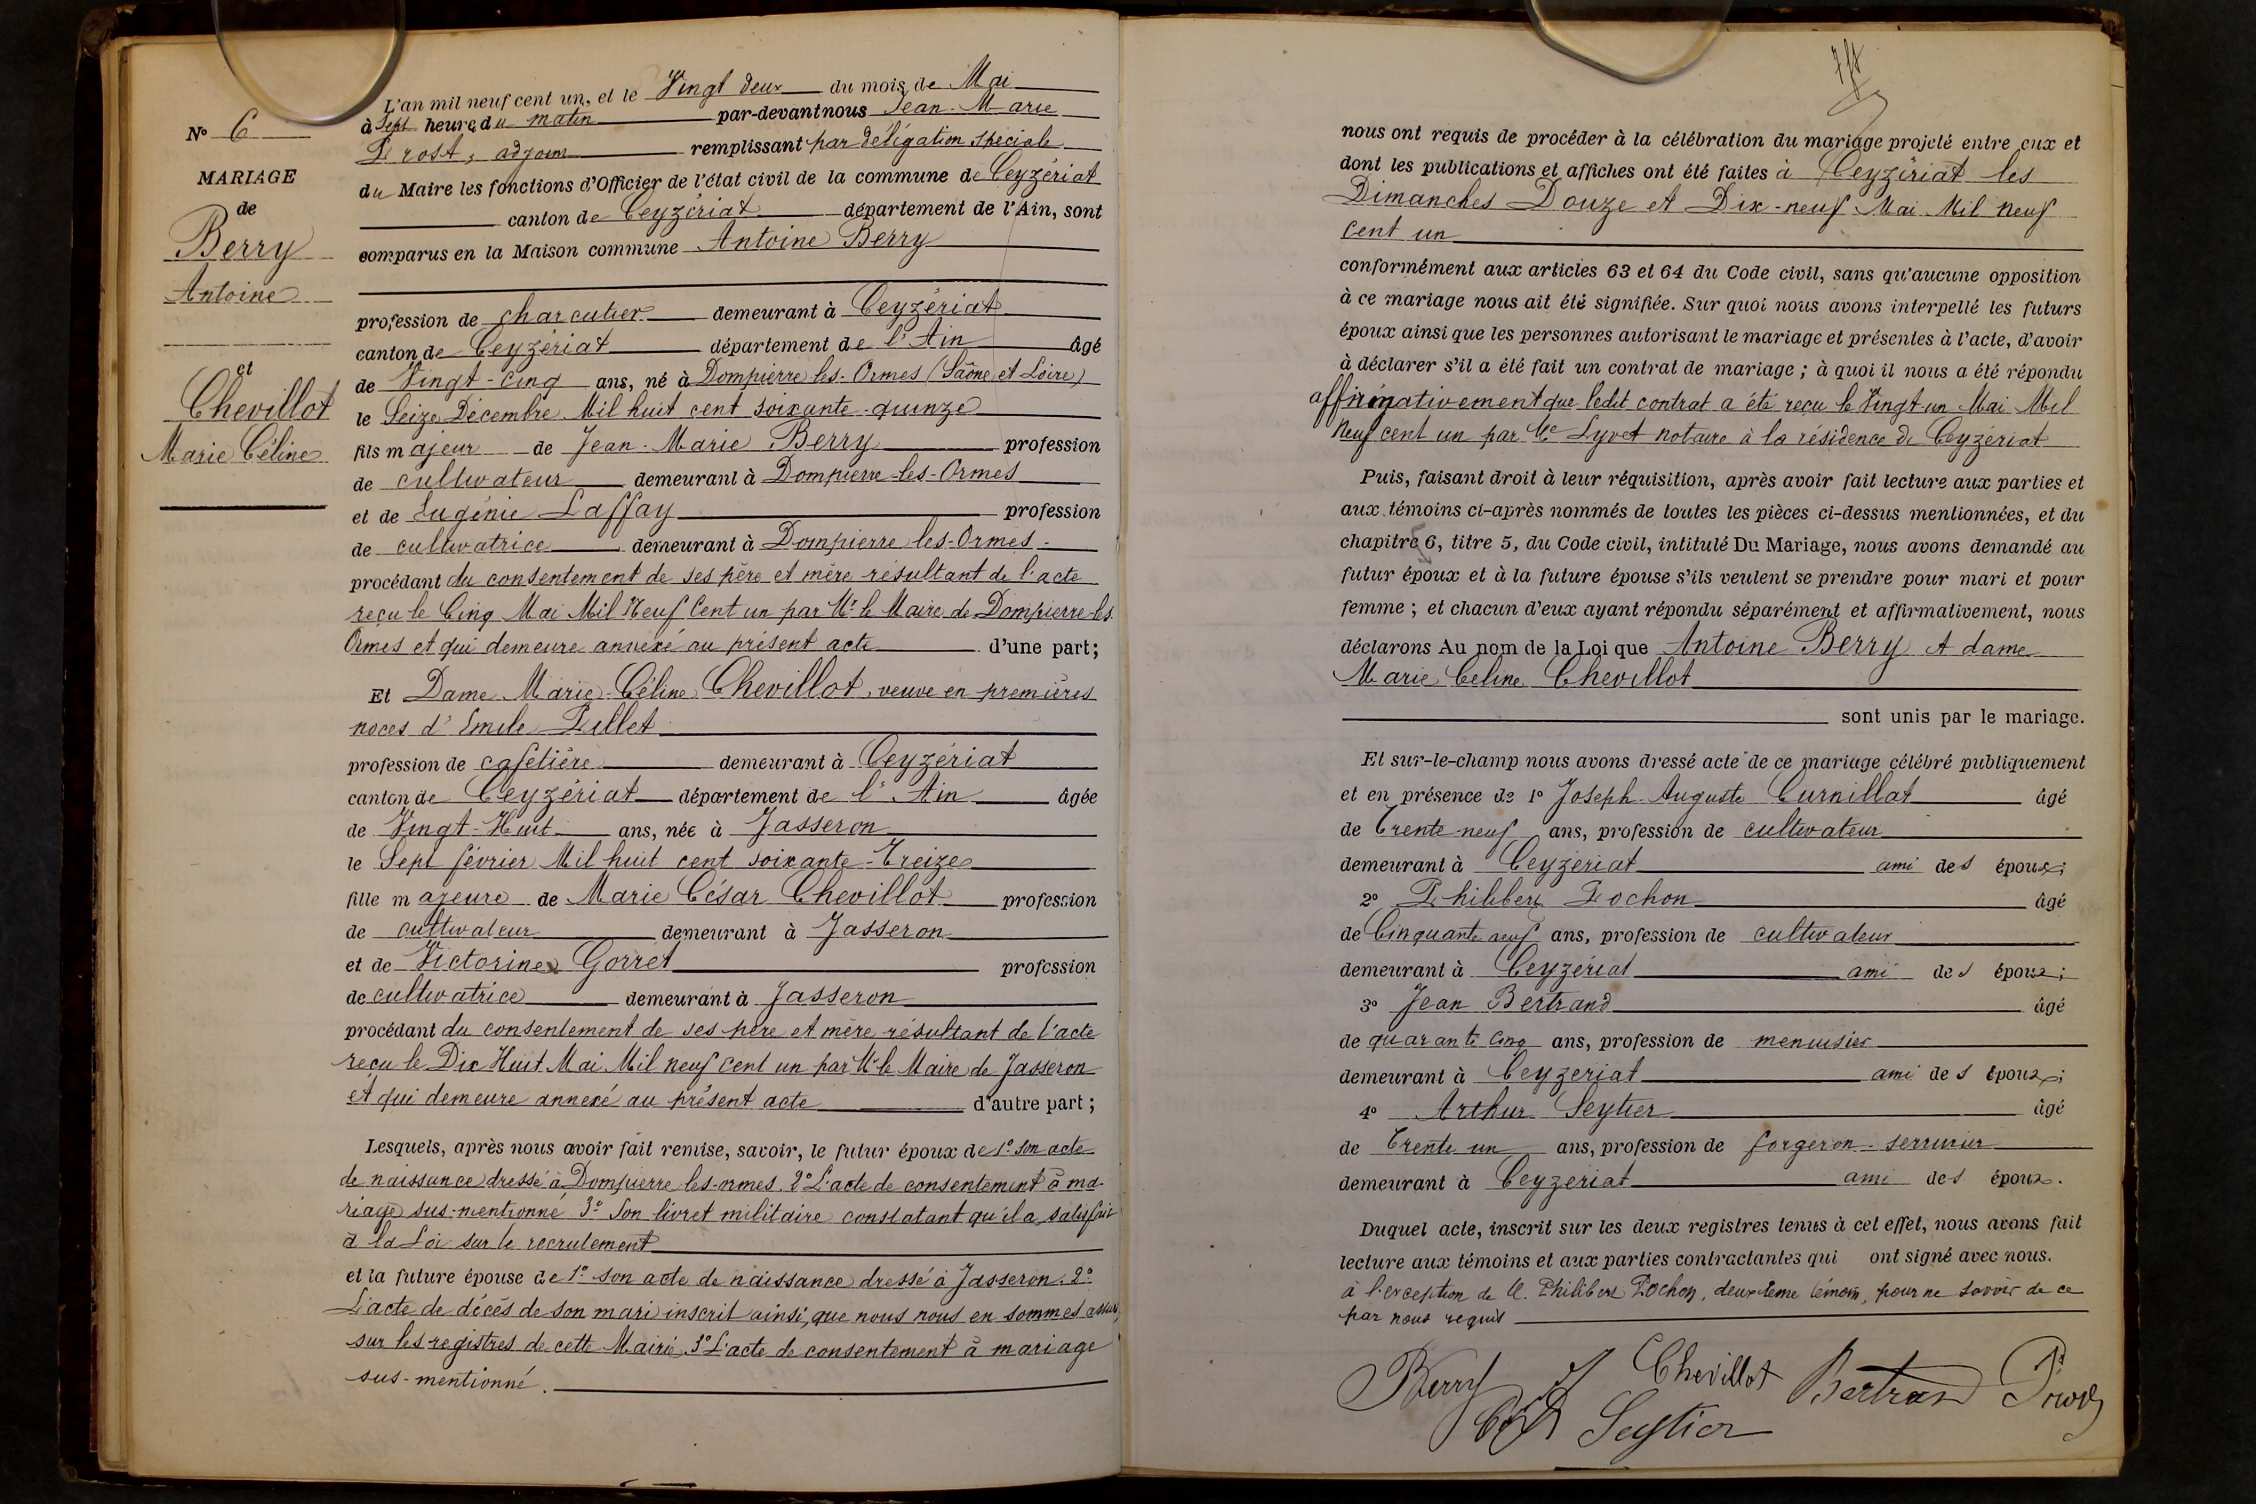 N° 6
MARIAGE
de
Berry
Antoine
et
Chevillot
Marie Céline
L'an mil neuf cent un, et le Vingt deux du mois de Mai
à Sept heures du matin par-devant nous Jean-Marie
adjoint remplissant par délégation spéciale
du Maire les fonctions d'Officier de l'état civil de la commune de Ceyzériat
canton de Ceyzériat département de l'Ain, sont
comparus en la Maison commune Antoine Berry
profession de charcutier demeurant à Ceyzériat
canton de Ceyzériat département de l'Ain âgé
de Vingt-cinq ans, né à Dompierre les-Ormes (Saône et Loire)
le Seize Décembre Mil huit cent soixante-quinze
fils majeur de Jean-Marie Berry profession
de cultivateur demeurant à Dompierre-les-Ormes
et de Eugénie Laffay profession
de cultivatrice demeurant à Dompierre les-Ormes
procédant du consentement de ses père et mère résultant de l'acte
reçu le Cinq Mai Mil Neuf Cent un par Mr le Maire de Dompierre-les
Ormes et qui demeure annexé au présent acte d'une part;
Et Dame Marie-Céline Chevillot, veuve en premières
noces d'Emile Pillet
profession de cafetière demeurant à Ceyzériat
canton de Ceyzériat département de l'Ain âgée
de Vingt-Huit ans, née à Jasseron
le Sept février Mil huit cent soixante-Treize
fille majeure de Marie César Chevillot profession
de cultivateur demeurant à Jasseron
et de Victorine Gorret profession
de cultivatrice demeurant à Jasseron
procédant du consentement de ses père et mère résultant de l'acte
reçu le Dix Huit Mai Mil neuf cent un par Mr le Maire de Jasseron
et qui demeure annexé au présent acte d'autre part;
Lesquels, après nous avoir fait remise, savoir, le futur époux de 1° son acte
de naissance dressé à Dompierre les-ormes. 2° L'acte de consentement à ma-
riage sus-mentionné 3° Son livret militaire constatant qu'il a satisfait
à la Loi sur le recrutement
et la future épouse de 1° son acte de naissance dressé à Jasseron. 2°
L'acte de décès de son mari inscrit ainsi, que nous nous en sommes assuré,
sur les registres de cette Mairie. 3° L'acte de consentement à mariage
sus-mentionné.
nous ont requis de procéder à la célébration du mariage projeté entre eux et
dont les publications et affiches ont été faites à Ceyzériat les
Dimanches Douze et Dix-neuf Mai Mil neuf
cent un
conformément aux articles 63 et 64 du Code civil, sans qu'aucune opposition
à ce mariage nous ait été signifiée. Sur quoi nous avons interpellé les futurs
époux ainsi que les personnes autorisant le mariage et présentes à l'acte, d'avoir
à déclarer s'il a été fait un contrat de mariage; à quoi il nous a été répondu
affirmativement que ledit contrat a été reçu le Vingt un Mai Mil
Neuf cent un par Me Lyvet notaire à la résidence de Ceyzériat
Puis, faisant droit à leur réquisition, après avoir fait lecture aux parties et
aux témoins ci-après nommés de toutes les pièces ci-dessus mentionnées, et du
chapitre 6, titre 5, du Code civil, intitulé Du Mariage, nous avons demandé au
futur époux et à la future épouse s'ils veulent se prendre pour mari et pour
femme; et chacun d'eux ayant répondu séparément et affirmativement, nous
déclarons Au nom de la Loi que Antoine Berry et dame
Marie Céline Chevillot
sont unis par le mariage.
Et sur-le-champ nous avons dressé acte de ce mariage célébré publiquement
et en présence de 1° Joseph Auguste Curnillat âgé
de Trente-neuf ans, profession de cultivateur
demeurant à Ceyzériat ami des époux;
2° Philibert Pochon âgé
de Cinquante neuf ans, profession de cultivateur
demeurant à Ceyzériat ami des époux;
3° Jean Bertrand âgé
de quarante cinq ans, profession de menuisier
demeurant à Ceyzeriat ami des époux;
4° Arthur Seytier âgé
de Trente un ans, profession de forgeron-serrurier
demeurant à Ceyzériat ami des époux.
Duquel acte, inscrit sur les deux registres tenus à cet effet, nous avons fait
lecture aux témoins et aux parties contractantes qui ont signé avec nous.
à l'exception de M. Philibert Pochon, deuxième témoin, pour ne savoir de ce
par nous requis
Berry Chevillot Bertrand
Seytier